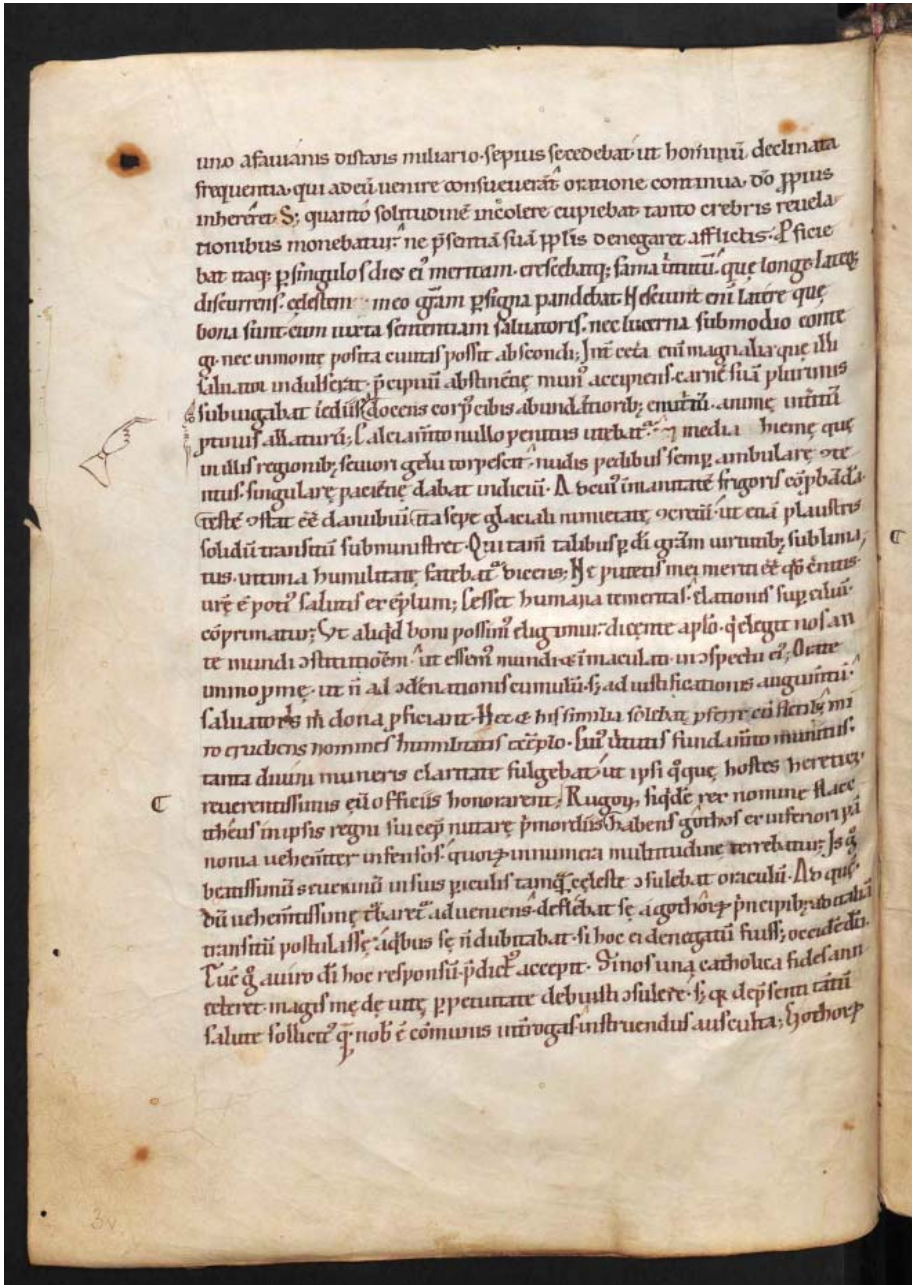 uno a favianis distans miliario. sepius secedebat ut hominū declinata
frequentia. qui ad eū venire consueverāt oratione continua. dō ꝓpius
inhereret. S; quantō solitudinē incolere cupiebat tanto crebris revela
tionibus monebatur. ne p̄sentiā suā ꝓplis denegaret afflictis. Pficie
bat itaq; ꝑ singulos dies ei' meritum. crescebatq; fama v̄tutū. quę longe lateq;
discurrens. cęlestem in eo grām ꝑ signa pandebat. Nesciunt enī latere quę
bona sunt. cum iuxta sententiam salvatoris. nec lucerna sub modio conte
gi. nec in monte posita civitas possit abscondi; Int̄ cet̄a enī magnalia que illi
salvator indulserat. p̄cipuū abstinētię mun' accipiens. carnē suā plurimis
subiugabat iediis. docens corp' cibis abundātiorib; enutritū. animę interitū
ptinus allaturū; Calciam̄to nullo penitus utebat'. media hieme quę
in illis regionib; seviori gelu torpescit. nudis pedibus semꝑ ambulare ꝯte
ntus. singularę paciētię dabat indiciū. Ad cui' inmanitatē frigoris cōprbādā.
testē ꝯstat ēē danubiū ita sepe glaciali nimietatę ꝯcretū. ut etiā plaustris
solidū transitū subministret. Qui tam̄ talibus ꝑ di grām virtutib; sublima
tus. intima humilitatę fatebat' dicens; Ne putetis mei meriti ēē qd cernitis.
urę ē poti' salutis exēplum; Cesset humana temeritas. elationis suꝑciliū
cōprimatur; Ut aliqd boni possim' eligimur. dicente aplō. q̄ elegit nos an
te mundi ꝯstitutiōem. ut essem' mundi & inmaculati. in ꝯspectu ei'; Orate
immo p me. ut n̄ ad ꝯdēnationis cumulū. s; ad iustificationis augmentū.
salvatoris n̄ri dona ꝓficiant. Hec & his similia solebat ꝓferre cū fletib; mi
ro erudiens homines humilitatis exēplo. Cui' v̄tutis fundam̄to munitus.
tanta divini muneris claritate fulgebat. ut ipsi qq̨ue hostes heretici.
reverentissimis eū officiis honorarent; Rugoꝝ siqdē rex nomine flacc
theus in ipsis regni sui cep̄ nutare p̄mordiis habens gothos ex inferiori pā
nonia vehem̄ter infensos. quoꝝ innumera multitudine terrebatur; Is g̊
beatissimū severinū in suis ꝑiculis tamq̄ cęleste ꝯsulebat oraculū. Ad quę
dū vehem̄tissimę t̄baret' adveniens. deflebat sę a gothoꝝ p̄ncipib; ad italiā
transitū postulasse. a qbus sę n̄ dubitabat. si hoc ei denegatū fuiss; occidēdū.
Tūc g̊ a viro di hoc responsū p̄dict' accepit. Si nos una catholica fides ann
ecteret. magis mę dę vitę ꝑpetuitate debuisti ꝯsulere. s; qꝛ de p̄senti tātū
salute sollicit' q̄ nob̄ ē cōmunis int̄rogas. instruendus ausculta; Gothoꝝ
3v